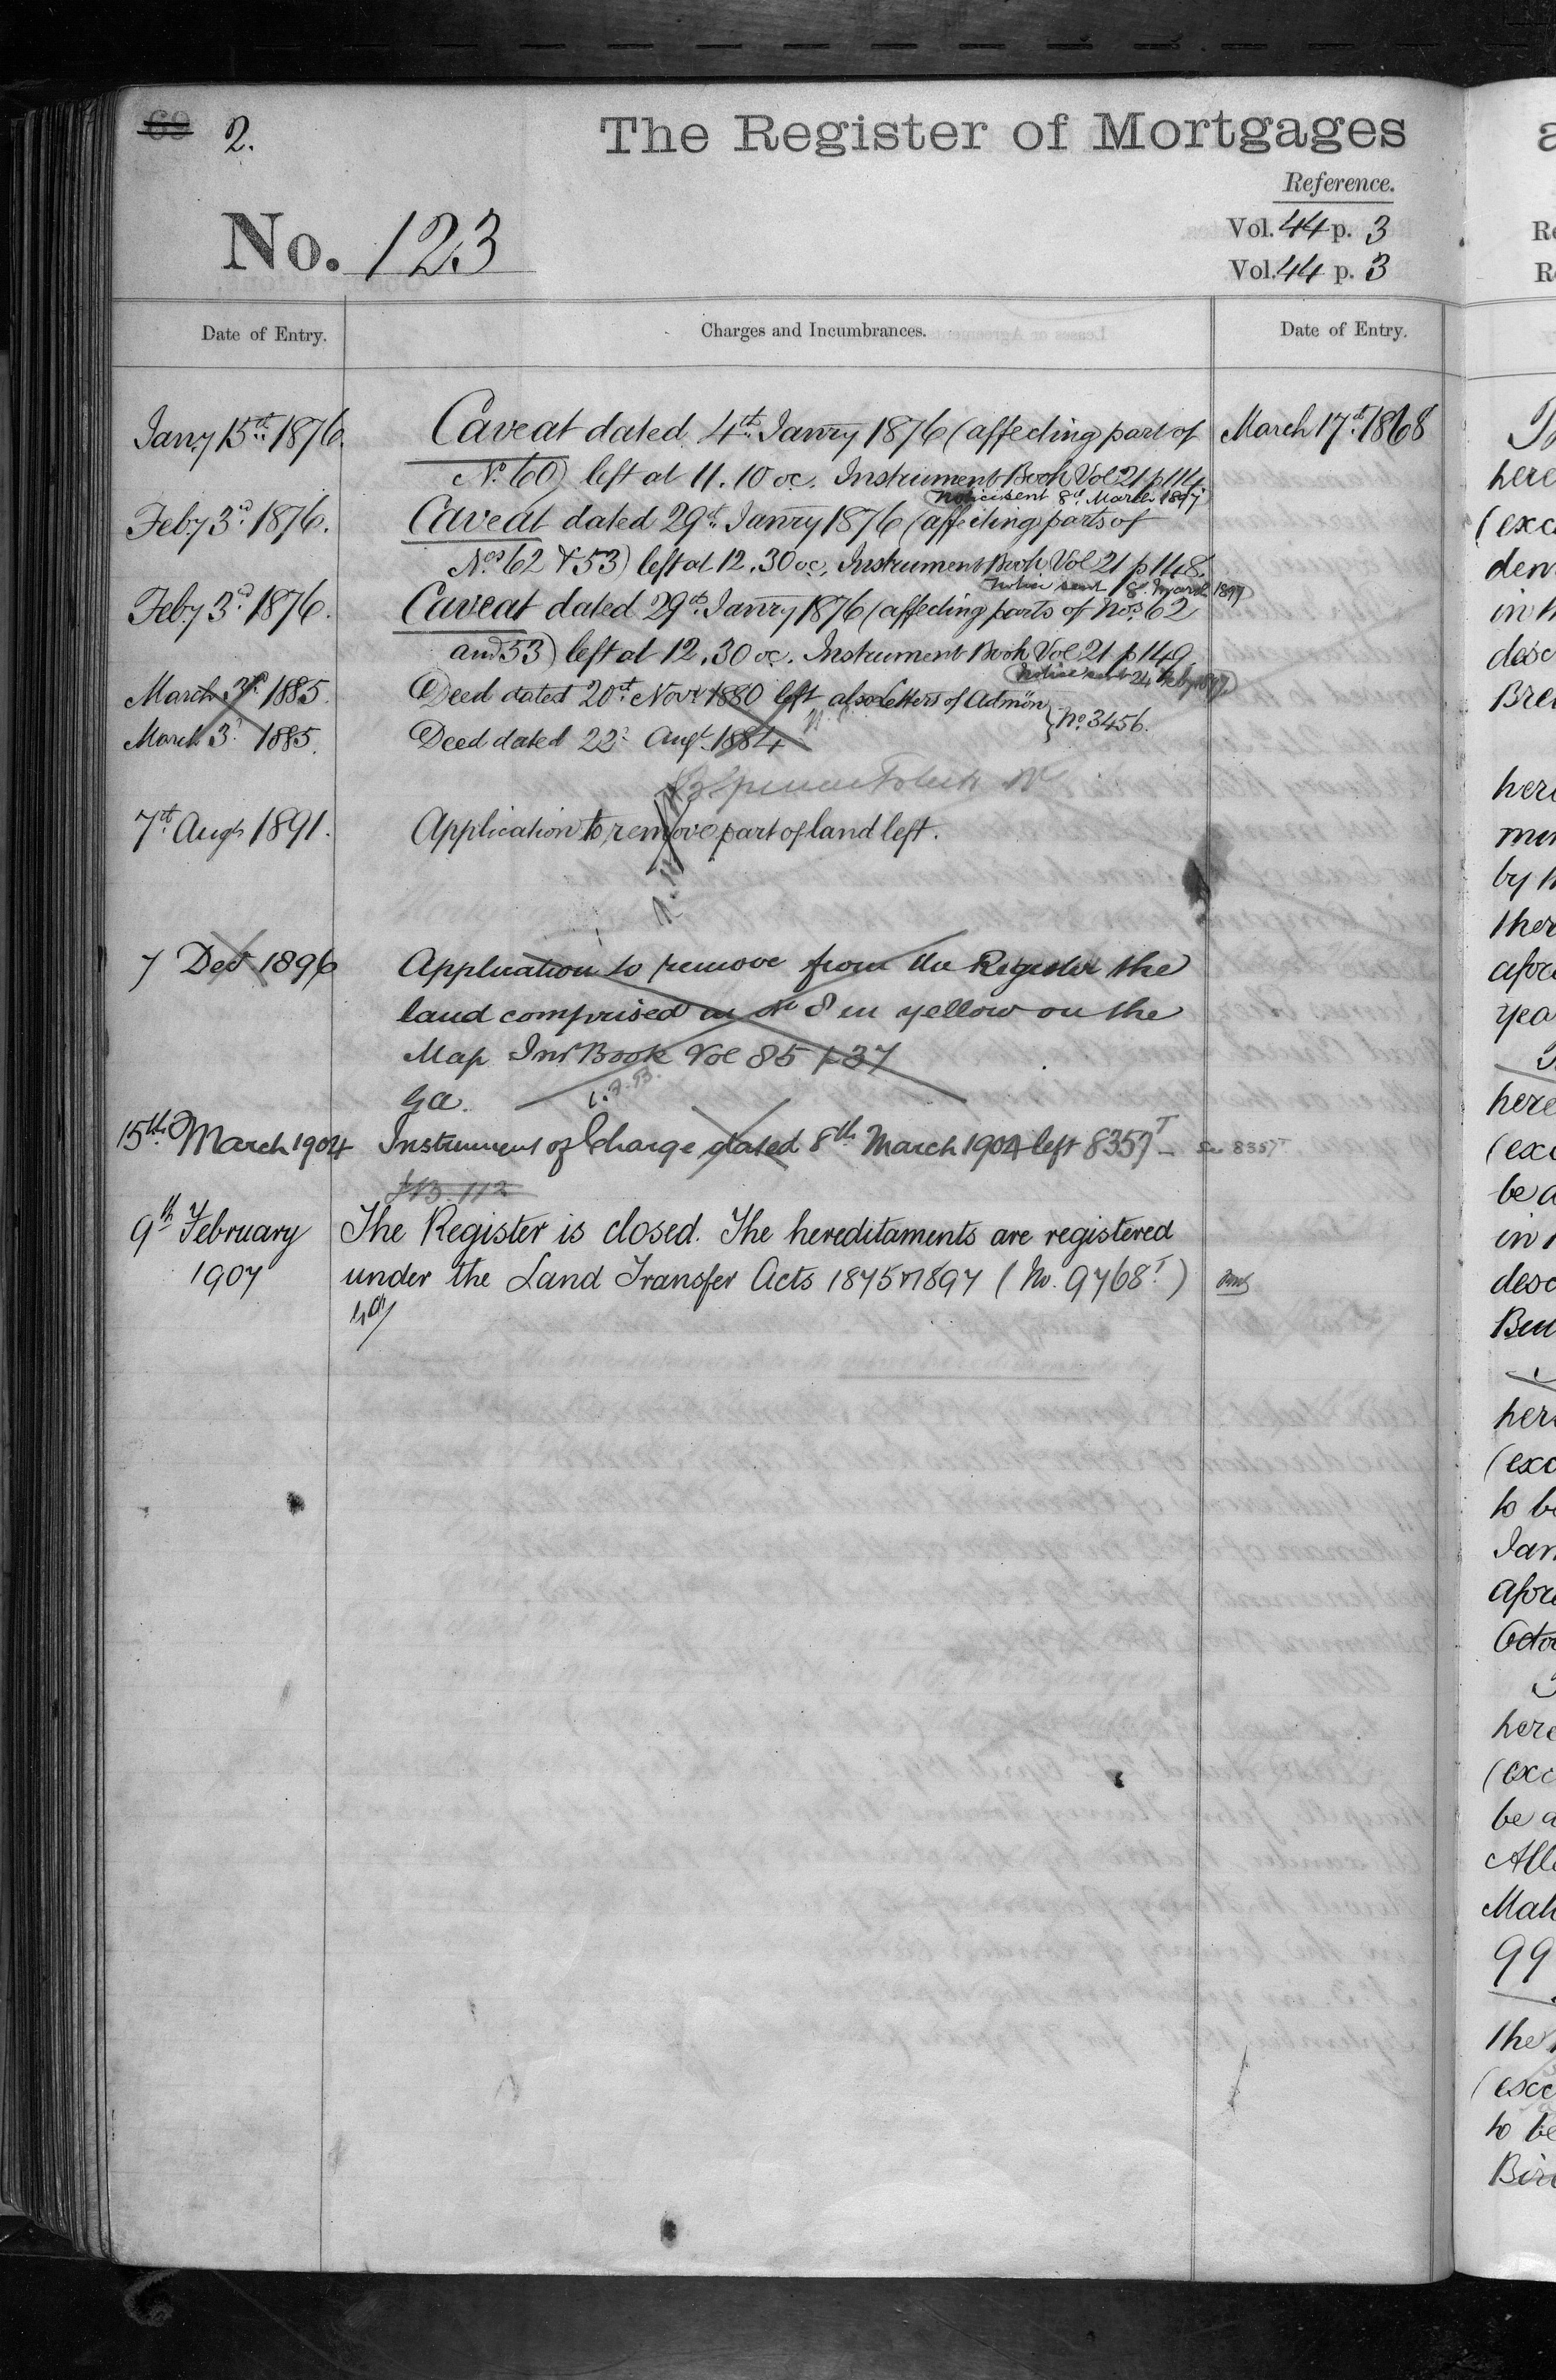 69 2.
The Register of Mortgages
Reference.
No. 123
Vol. 44 p. 3
Vol. 44 p. 3
Date of Entry.
Charges and Incumbrances.
Date of Entry.
Jany 15th 1876.
Caveat dated 4th Janry 1876 (affecting part of
March 17th 1868
No. 60) left at 11.10 oc. Instrument Book Vol 21 p 114.
Notice sent 8th March 1897
Feby 3d 1876.
Caveat dated 29th Janry 1876 (affecting parts of
Nos 62 & 53) left at 12.30 oc. Instrument Book Vol 21 p 148.
Notice sent 8th March 1897
Feby 3d 1876.
Caveat dated 29th Janry 1876 (affecting parts of Nos. 62
and 53) left at 12.30 oc. Instrument Book Vol 21 p 149.
Notice sent 24 Feby 1897
March 3d 1885.
Deed dated 20th Novr 1880 left also Letters of Admon
March 3d 1885.
Deed dated 22d Augt 1884
No. 3456.
7th Augt 1891.
Application to remove part of land left.
7 Decr 1896
Application to remove from the Register the
land comprised in No 8 in yellow on the
Map Inst Book Vol 85 p 37
15th March 1904
Instrument of Charge dated 8th March 1904 left 8357T
See 8357T
9th February
The Register is closed. The hereditaments are registered
1907
under the Land Transfer Acts 1875 & 1897 (No. 9768T)